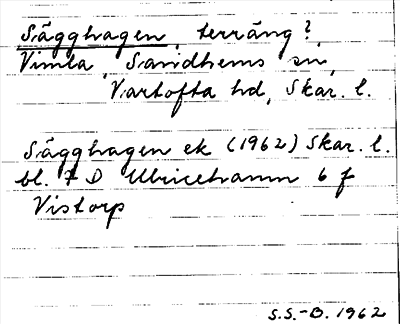 Sägghagen, terräng?,
Vimla, Sandhems sn,
Vartofta hd, Skar. l.
Sägghagen ek (1962) Skar. l.
bl. 7 D Ulricehamn 6 f
Vistorp
S.S.-B. 1962